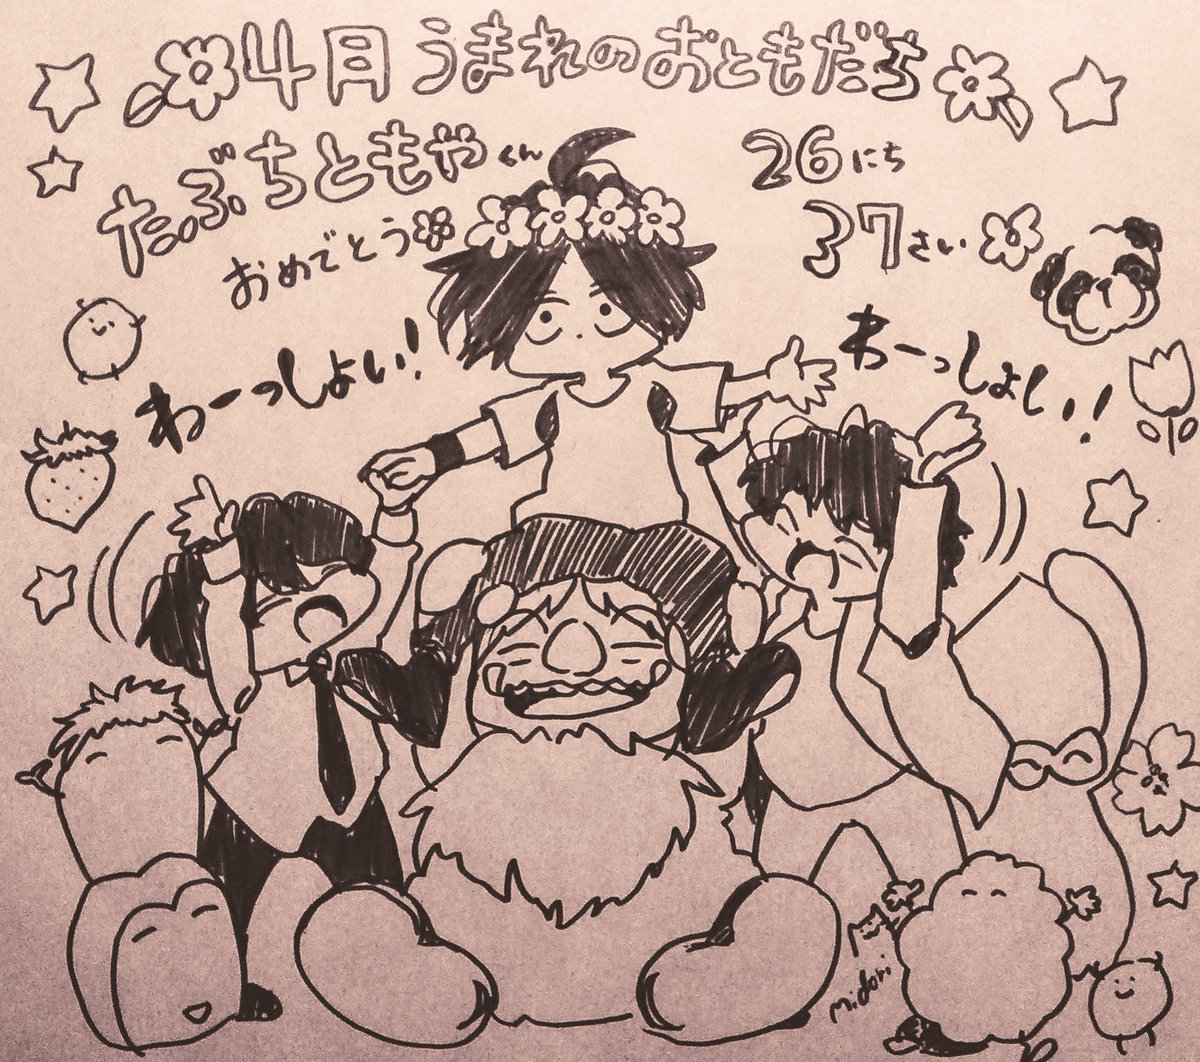 4月うまれのおともだち
たぶちともやくん
26にち
おめでとう
37さい
わーっしょい!
わーっしょい!!
midori